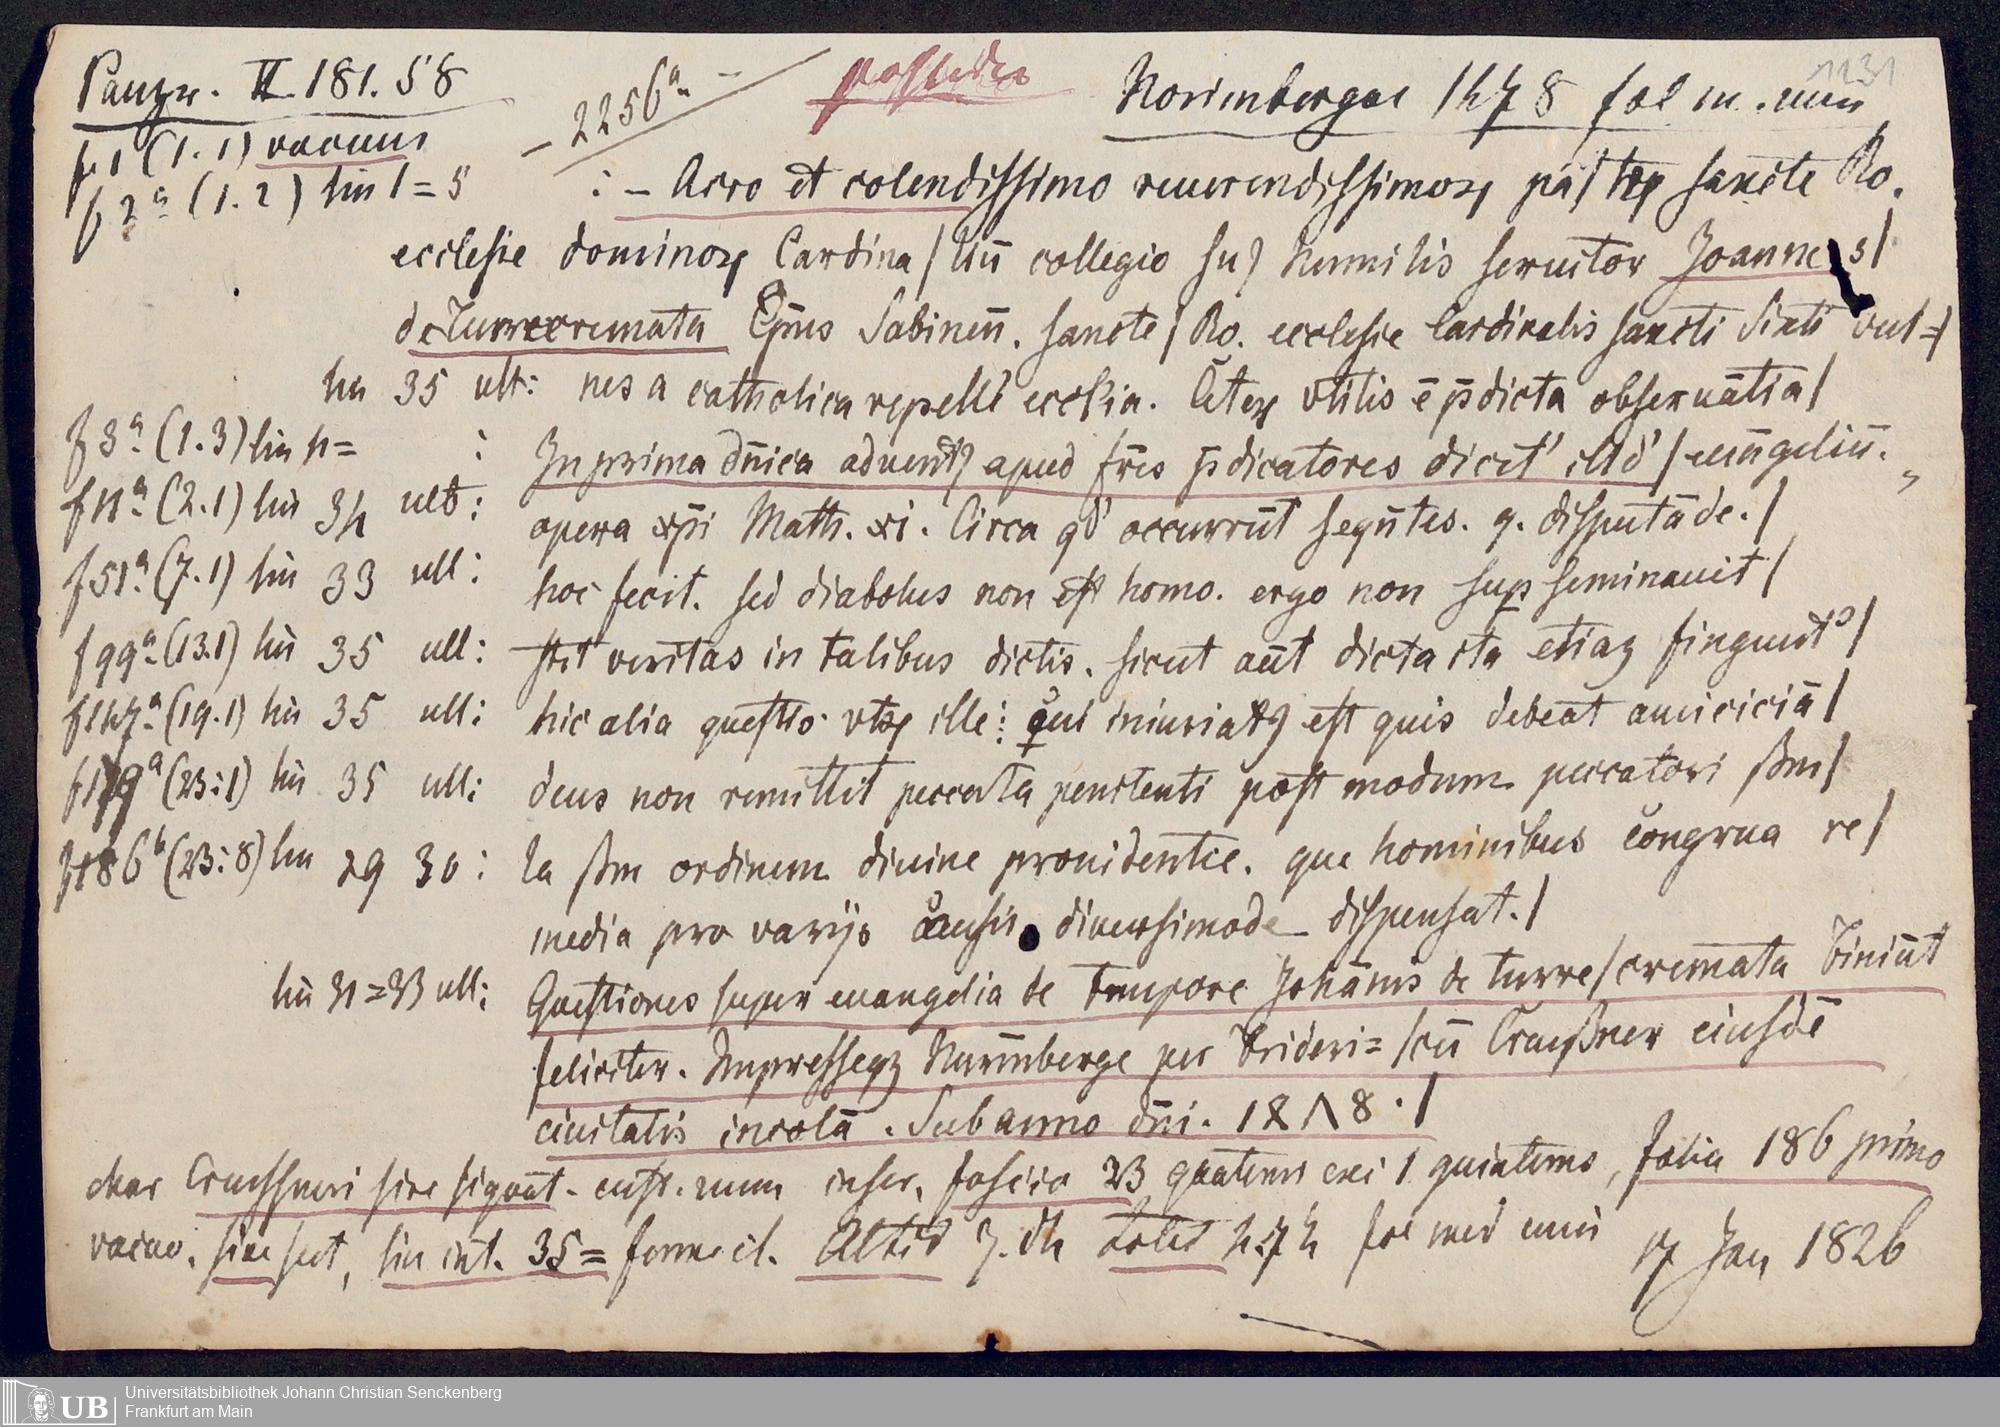 Panzr. II. 181. 58
2256a
possidet
Norimbergae 1478 fol m. min
1131
f. 1 (1.1) vacuus
f 2a (1.2) lin 1 = 5 : - Acro et colendissimo reuerendissimoꝝ pa/trꝝ sancte Ro.
ecclesie dominoꝝ Cardina/liū collegio su) humilis seruitor Joannes/
de Turrecremata Ep̄us Sabineñ. sancte/ Ro. ecclesie Cardinalis sancti Sixti vul=/
lin 35 ult: nes a catholica repelli eccl'ia. Cetꝝ vtilis ē p̄dicta obseruātia/
f 3a (1.3) lin 4= : In prima dn̄ica aduent9 apud fr̄es p̄dicatores dicit' illd' / euāgeliū.
f 11a (2.1) lin 34 ult: opera xp̄i Math. xi. Circa qd' occurrūt seqn̄tes. q. disputāde./
f 51a (7.1) lin 33 ull: hoc fecit. sed diabolus non est homo. ergo non suꝑ seminauit/
f 99a (13.1) lin 35 ull: stit veritas in talibus dictis. sicut aūt dicta ista etiaz fingunt'/
f 147a (19.1) lin 35 ull: hic alia questio vtꝝ ille: cui iniuriat9 est quis debeat amiciciā/
f 179a (23:1) lin 35 ull: deus non remittit peccata penitenti post modum peccatori ßm/
f 186b (23:8) lin 29 30: la ßm ordinem diuine prouidentie. que hominibus congrua re/
media pro varijs causis diuersimode dispensat./
lin 31=33 ull: Questiones super euangelia de tempore Johānis de turre/cremata Finiūt
feliciter. Impresseqz Nurmberge per Frideri=/cū Creußner eiusdē
ciuitatis incolā. Sub anno dn̄i. 1478./
char Creussneri sine signat. cust. num inscr. fascic 23 quaterni exc 1 quinterno, folia 186 primo
vacuo. sine sect, lin int. 35= forma el. 4.74 fol med min 17 Jan 1826
Universitätsbibliothek Johann Christian Senckenberg
Frankfurt am Main
UB